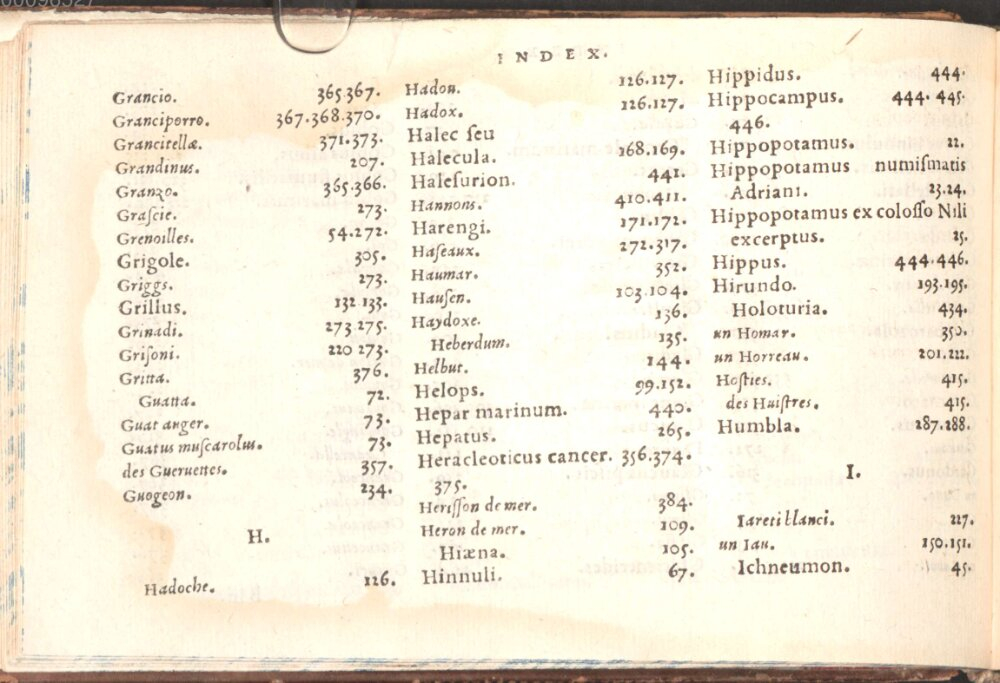 INDEX.
Grancio. 365.367.
Granciporro. 367.368.370.
Grancitellæ. 371.373.
Grandinus. 207.
Granzo. 365.366.
Graſcie. 273.
Grenoilles. 54.272.
Grigole. 305.
Griggs. 273.
Grillus. 132 133.
Grinadi. 273 275.
Griſoni. 220 273.
Gritta. 376.
Guatta. 72.
Guat anger. 73.
Guatus muſcarolus. 73.
des Gueruettes. 357.
Guogeon. 234.
H.
Hadoche. 126.
Hadou. 126.127.
Hadox. 126.127.
Halec ſeu
Halecula. 168.169.
Haleſurion. 441.
Hannons. 410.411.
Harengi. 171.172.
Haſeaux. 272.317.
Haumar. 352.
Hauſen. 103.104.
Haydoxe. 136.
Heberdum. 135.
Helbut. 144.
Helops. 99.152.
Hepar marinum. 440.
Hepatus. 265.
Heracleoticus cancer. 356.374.
375.
Heriſſon de mer. 384.
Heron de mer. 109.
Hiæna. 105.
Hinnuli. 67.
Hippidus. 444.
Hippocampus. 444. 445.
446.
Hippopotamus. 22.
Hippopotamus numiſmatis
Adriani. 23.24.
Hippopotamus ex coloſſo Nili
excerptus. 25.
Hippus. 444.446.
Hirundo. 193.195.
Holoturia. 434.
un Homar. 350.
un Horreau. 201.222.
Hoſties. 415.
des Huiſtres. 415.
Humbla. 287.288.
I.
Iareti blanci. 227.
un Iau. 150.151.
Ichneumon. 45.